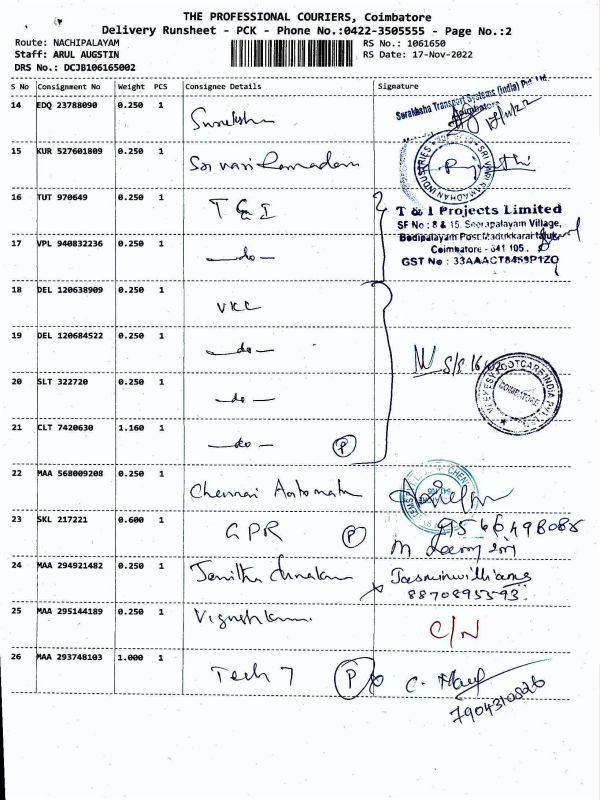 THE PROFESSIONAL COURIERS, Coimbatore
Delivery Runsheet - PCK - Phone No.:0422-3505555 - Page No.:2
Route: NACHIPALAYAM RS No.: 1061650
Staff: ARUL AUGSTIN RS Date: 17-Nov-2022
DRS No.: DCJB106165002
S No Consignment No Weight PCS Consignee Details Signature
14 EDQ 23788090 0.250 1
Coimbatore
15 KUR 527601809 0.250 1
SRI VARI RAMADHAN INDUSTRIES
16 TUT 970649 0.250 1 T & I
T & I Projects Limited
SF No : 8 & 15, Seerapalayam Village,
17 VPL 940832236 0.250 1 -do-
Bodipalayam Post Madukkarai taluk,
Coimbatore - 641 105.
GST No : 33AAACT8459P1ZO
18 DEL 120638909 0.250 1 VKC
19 DEL 120684522 0.250 1 -do-
20 SLT 322720 0.250 1 -do-
COIMBATORE
21 CLT 7420630 1.160 1 -do- P
22 MAA 568009208 0.250 1 Chennai
23 SKL 217221 0.600 1 GPR P
24 MAA 294921482 0.250 1 Jasminwilliams
8870895593
25 MAA 295144189 0.250 1 C/N
26 MAA 293748103 1.000 1 Tech 7 P
7904310826